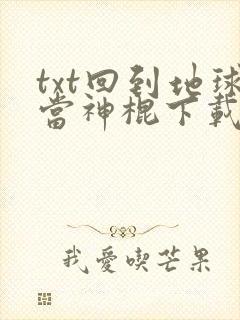 txt回到地球
當神棍下載
我愛喫芒果